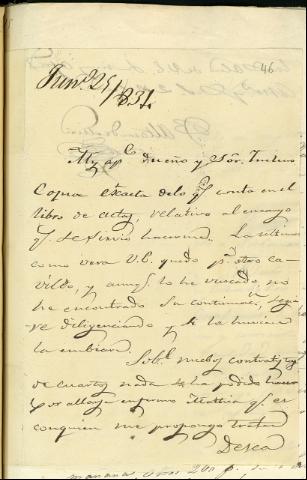 46
Jun.º 25/831.
My ap.do dueño y Sōr. Incluio
Copia exacta de lo q.e consta en el
libro de actas, relativo al encargo
q.e se sirvio hacerme. La ultima
como vera V.E. quedo p.a otro ca-
vildo, y aunq.e lo he buscado, no
he encontrado su continuac.n, segui-
re diligenciando y si la huviere
la embiare.
Sob.e nuebos contratos
de cuartos nada se ha podido hacer
por allarse enfermo q.e es
con quien me propongo tratar
Desea